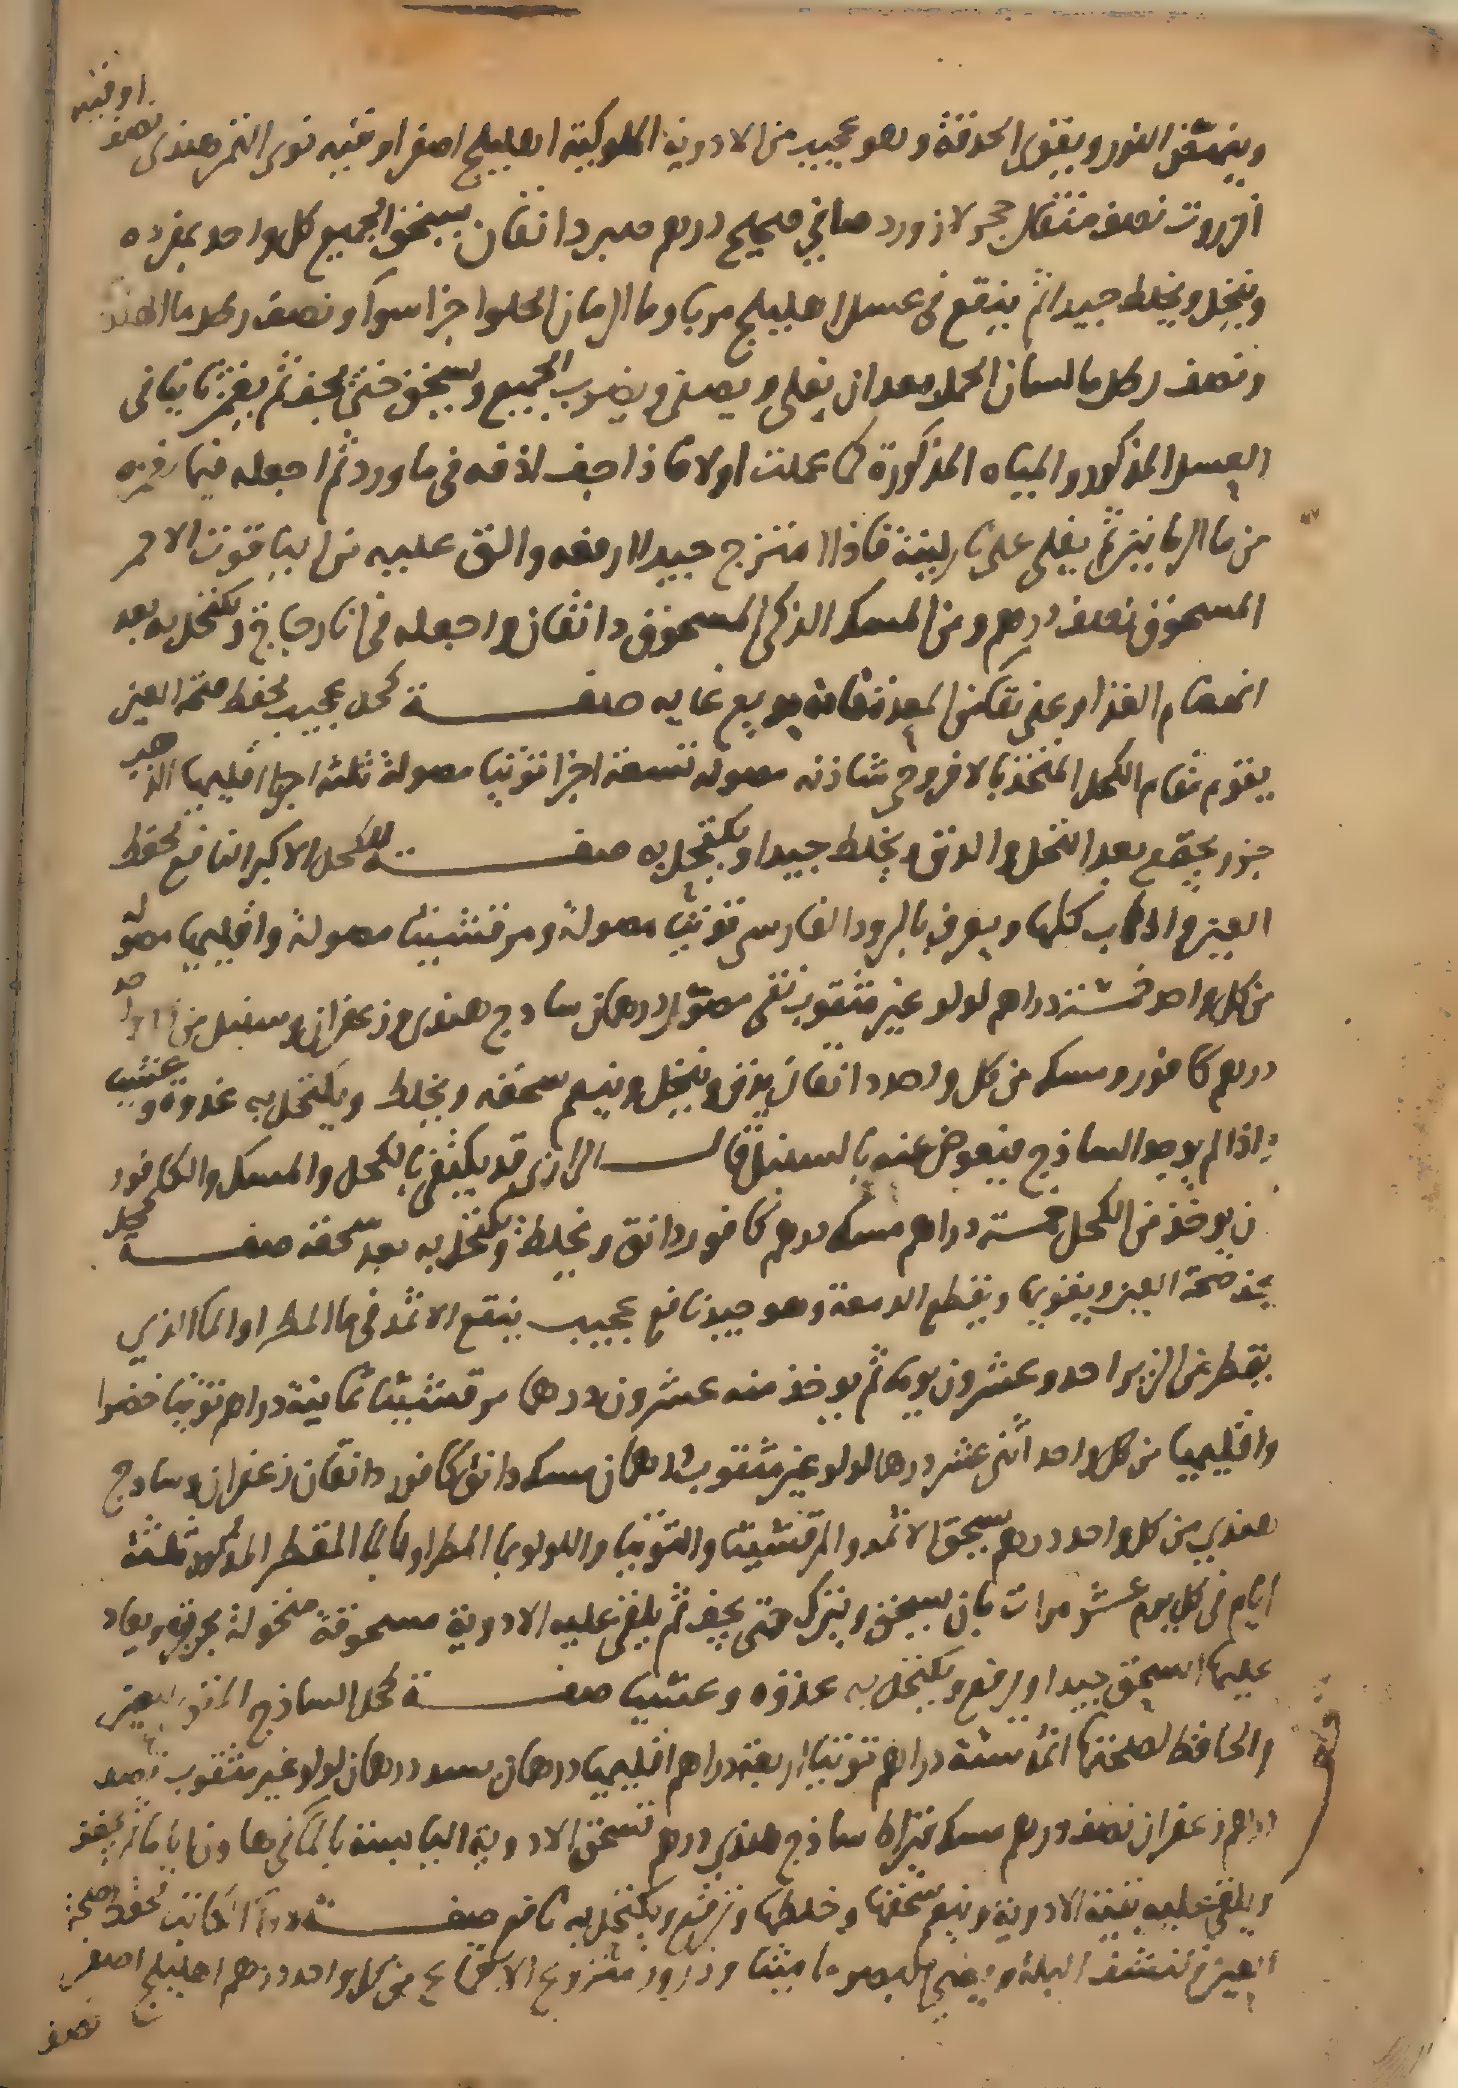 اوقيه
وينشف النور ويقوي الحدقة وهو عجيب من الادوية الملوكية اهليلج اصفر اوقيه نوى التمر هندى نصف
انزروت نصف مثقال حجر لازورد صافي صحيح درهم صبر دانقان يسحق الجميع كل واحد بمفرده
وينخل ويخلط جيدا ثم ينقع في عسل اهليلج مربا وما الرمان الحلو اجزا سوا ونصف رطل ما الهند
ونصف رطل ما لسان الحمل بعد ان يغلى ويصفى ويضرب الجميع ويسحق حتى يجف ثم يغمر ثانيا في
العسل المذكور والمياه المذكورة كما عملت اولا فاذا جف اذفه في ما ورد ثم اجعله فيما
من ما الرمانين ثم يغلى على نار لينة فاذا امتزج جيدا ارفعه والق عليه من الياقوت الاحمر
المسحوق نصف درهم ومن المسك الذكي المسحوق دانقان واجعله في انا زجاج ويكتحل به بعد
انهضام الغذا وعلى نقا من المعدة فانه بديع غايه صفـة كحل عجيب يحفظ صحة العين
يقوم مقام الكحل المتخذ بالافروجي شاذنه مصوله تسعة اجزا توتيا مصولة ثلثة اجزا اقليميا الذهب
جزو يجمع بعد النخل والدق ويخلط جيدا ويكتحل به صفـة الكحل الاكبر النافع لحفظ
العين والاداب كلها ويعرف بالبرود الفارسي توتيا مصولة ومرقشيثا مصولة واقليميا مصوله
من كل واحد خمسة دراهم لولو غير مثقوب نقي مصول درهمان سادج هندى وزعفران وسنبل من كل واحد
درهم كافور ومسك من كل واحد دانقان يدق وينخل وينعم سحقه ويخلط ويكتحل به غدوة وعشيا
واذا لم يوجد الساذج فيعوض عنه بالسنبل قالـ الرازي قد يكتفى بالكحل والمسك والكافور
بان يوخذ من الكحل خمسة دراهم مسك درهم كافور دانق ويخلط ويكتحل به بعد سحقه صفـة كحل
يحفظ صحة العين ويقويها ويقطع الدمعة وهو جيد نافع عجيب ينقع الاثمد في ما المطر او الما الذي
يقطر من الزير احد وعشرون يوما ثم يوخذ منه عشرون درهما مرقشيثا ثمانية دراهم توتيا خضرا
واقليميا من كل واحد اثني عشر درهما لولو غير مثقوب درهمان مسك دانق كافور دانقان زعفران وسادج
هندي من كل واحد درهم يسحق الاثمد والمرقشيثا والتوتيا واللولو بما المطر او بالما المقطر المذكور ثلثة
ايام في كل يوم عشر مرات بان يسحق ويترك حتى يجف ثم يلقى عليه الادوية مسحوقة منخولة بحريرة ويعاد
عليها السحق جيدا ويرفع ويكتحل به غدوه وعشيا صفـة كحل الساذج المقوي للعين
والحافظ لصحتها اثمد ستة دراهم توتيا اربعة دراهم اقليميا درهمان بسد درهمان لولو غير مثقوب نصف
درهم زعفران نصف درهم مسك قيراط ساذج هندي درهم تسحق الادوية اليابسة بالما في هاون اياما ثم يجفف
ويلقى عليه بقية الادوية وينعم سحقها وخلطها وترفع ويكتحل به نافع صفـة دوا الحانيت لحفظ صحة
العين وتنشف البلة ويضي البصر ماميثا وذرور منزوع الاقماع من كل واحد درهم اهليلج اصفر
نصف